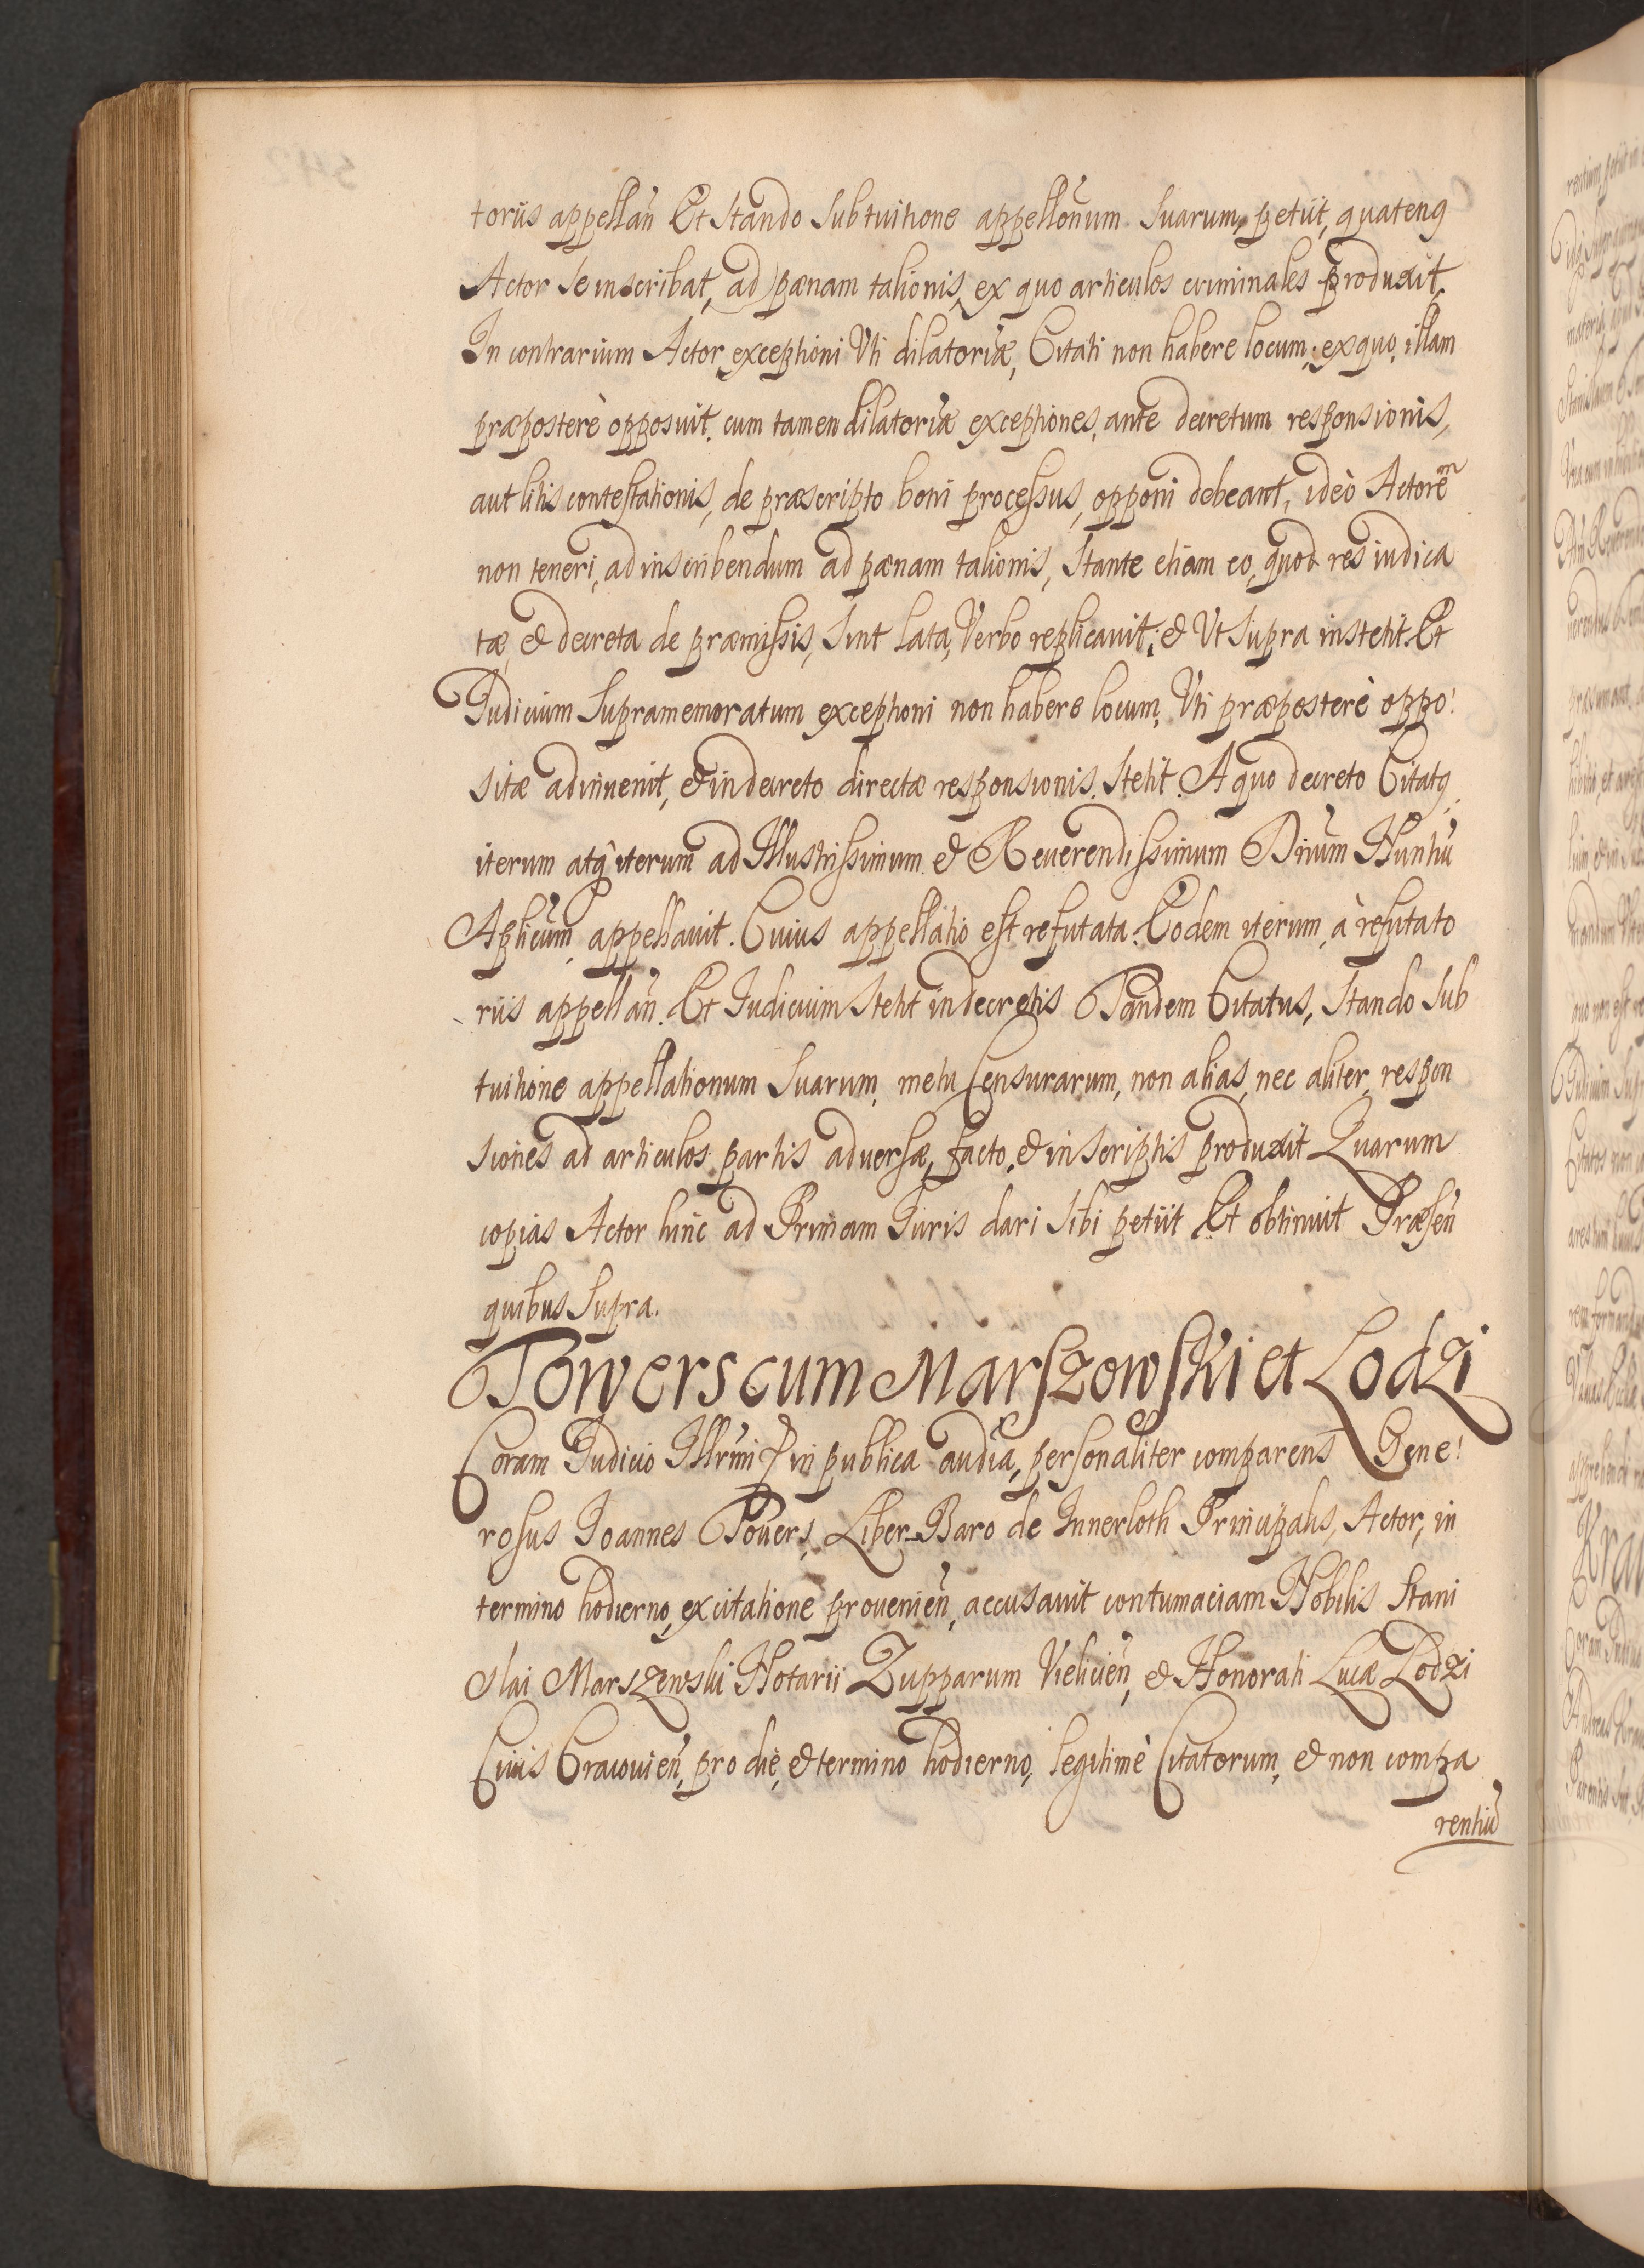 toriis appellan̄ Et stando sub tuitione appellonum suarum, petiit, quatenq
Actor se inscribat, ad pænam talionis, ex quo articulos criminales produxit.
In contrarium Actor, exceptioni Uti dilatoriæ, Citati non habere locum, ex quo, illam
præposterè opposuit, cum tamen dilatoriæ exceptiones, ante decretum responsionis,
aut litis contestationis, de præscripto boni processus, opponi debeant, ideò Actorem
non teneri, ad inscribendum ad pænam talionis, stante etiam eo, quod res iudica
tæ, et decreta de præmissis, sint lata, Verbo replicavit; et Ut supra institit. Et
Iudicium supramemoratum exceptioni non habere locum, Uti præposterè oppo
sitæ adinuenit, et in decreto directæ responsionis, stetit. A quo decreto Citatq
iterum atq iterum ad Illustrissimum et Reuerendissimum Dnum Nuntiū
Aplicum, appellauit. Cuius appellatio est refutata. Eodem iterum, à refutato
riis appellan̄. Et Iudicium stetit in decretis Tandem Citatus, stando sub
tuitione appellationum suarum, metu Censurarum, non alias, nec aliter, respon
siones ad articulos partis aduersæ, facto, et in scriptis produxit Quarum
copias Actor hinc ad Primam Iuris dari sibi petiit Et obtinuit Præsen̄
quibus supra.
Towers cum Marszowski et Lodzi
Coram Iudicio Illrmi &c in publica audia, personaliter comparens Gene
rosus Ioannes Touers, Liber Baro de Innerloth Principalis, Actor, in
termino hodierno, ex citatione prouenien̄, accusauit contumaciam Nobilis Stani
slai Marszewski Notarii Zupparum Vielicien̄, et Honorati Lucæ Lodzi
Ciuis Cracouien̄, pro die, et termino hodierno, legitimè Citatorum, et non compa
rentiū